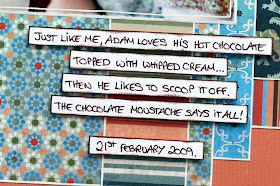 JUST LIKE ME, ADAM LOVES HIS HOT CHOCOLATE
TOPPED WITH WHIPPED CREAM...
THEN HE LIKES TO SCOOP IT OFF.
THE CHOCOLATE MOUSTACHE SAYS IT ALL!
21ST FEBRUARY 2009.